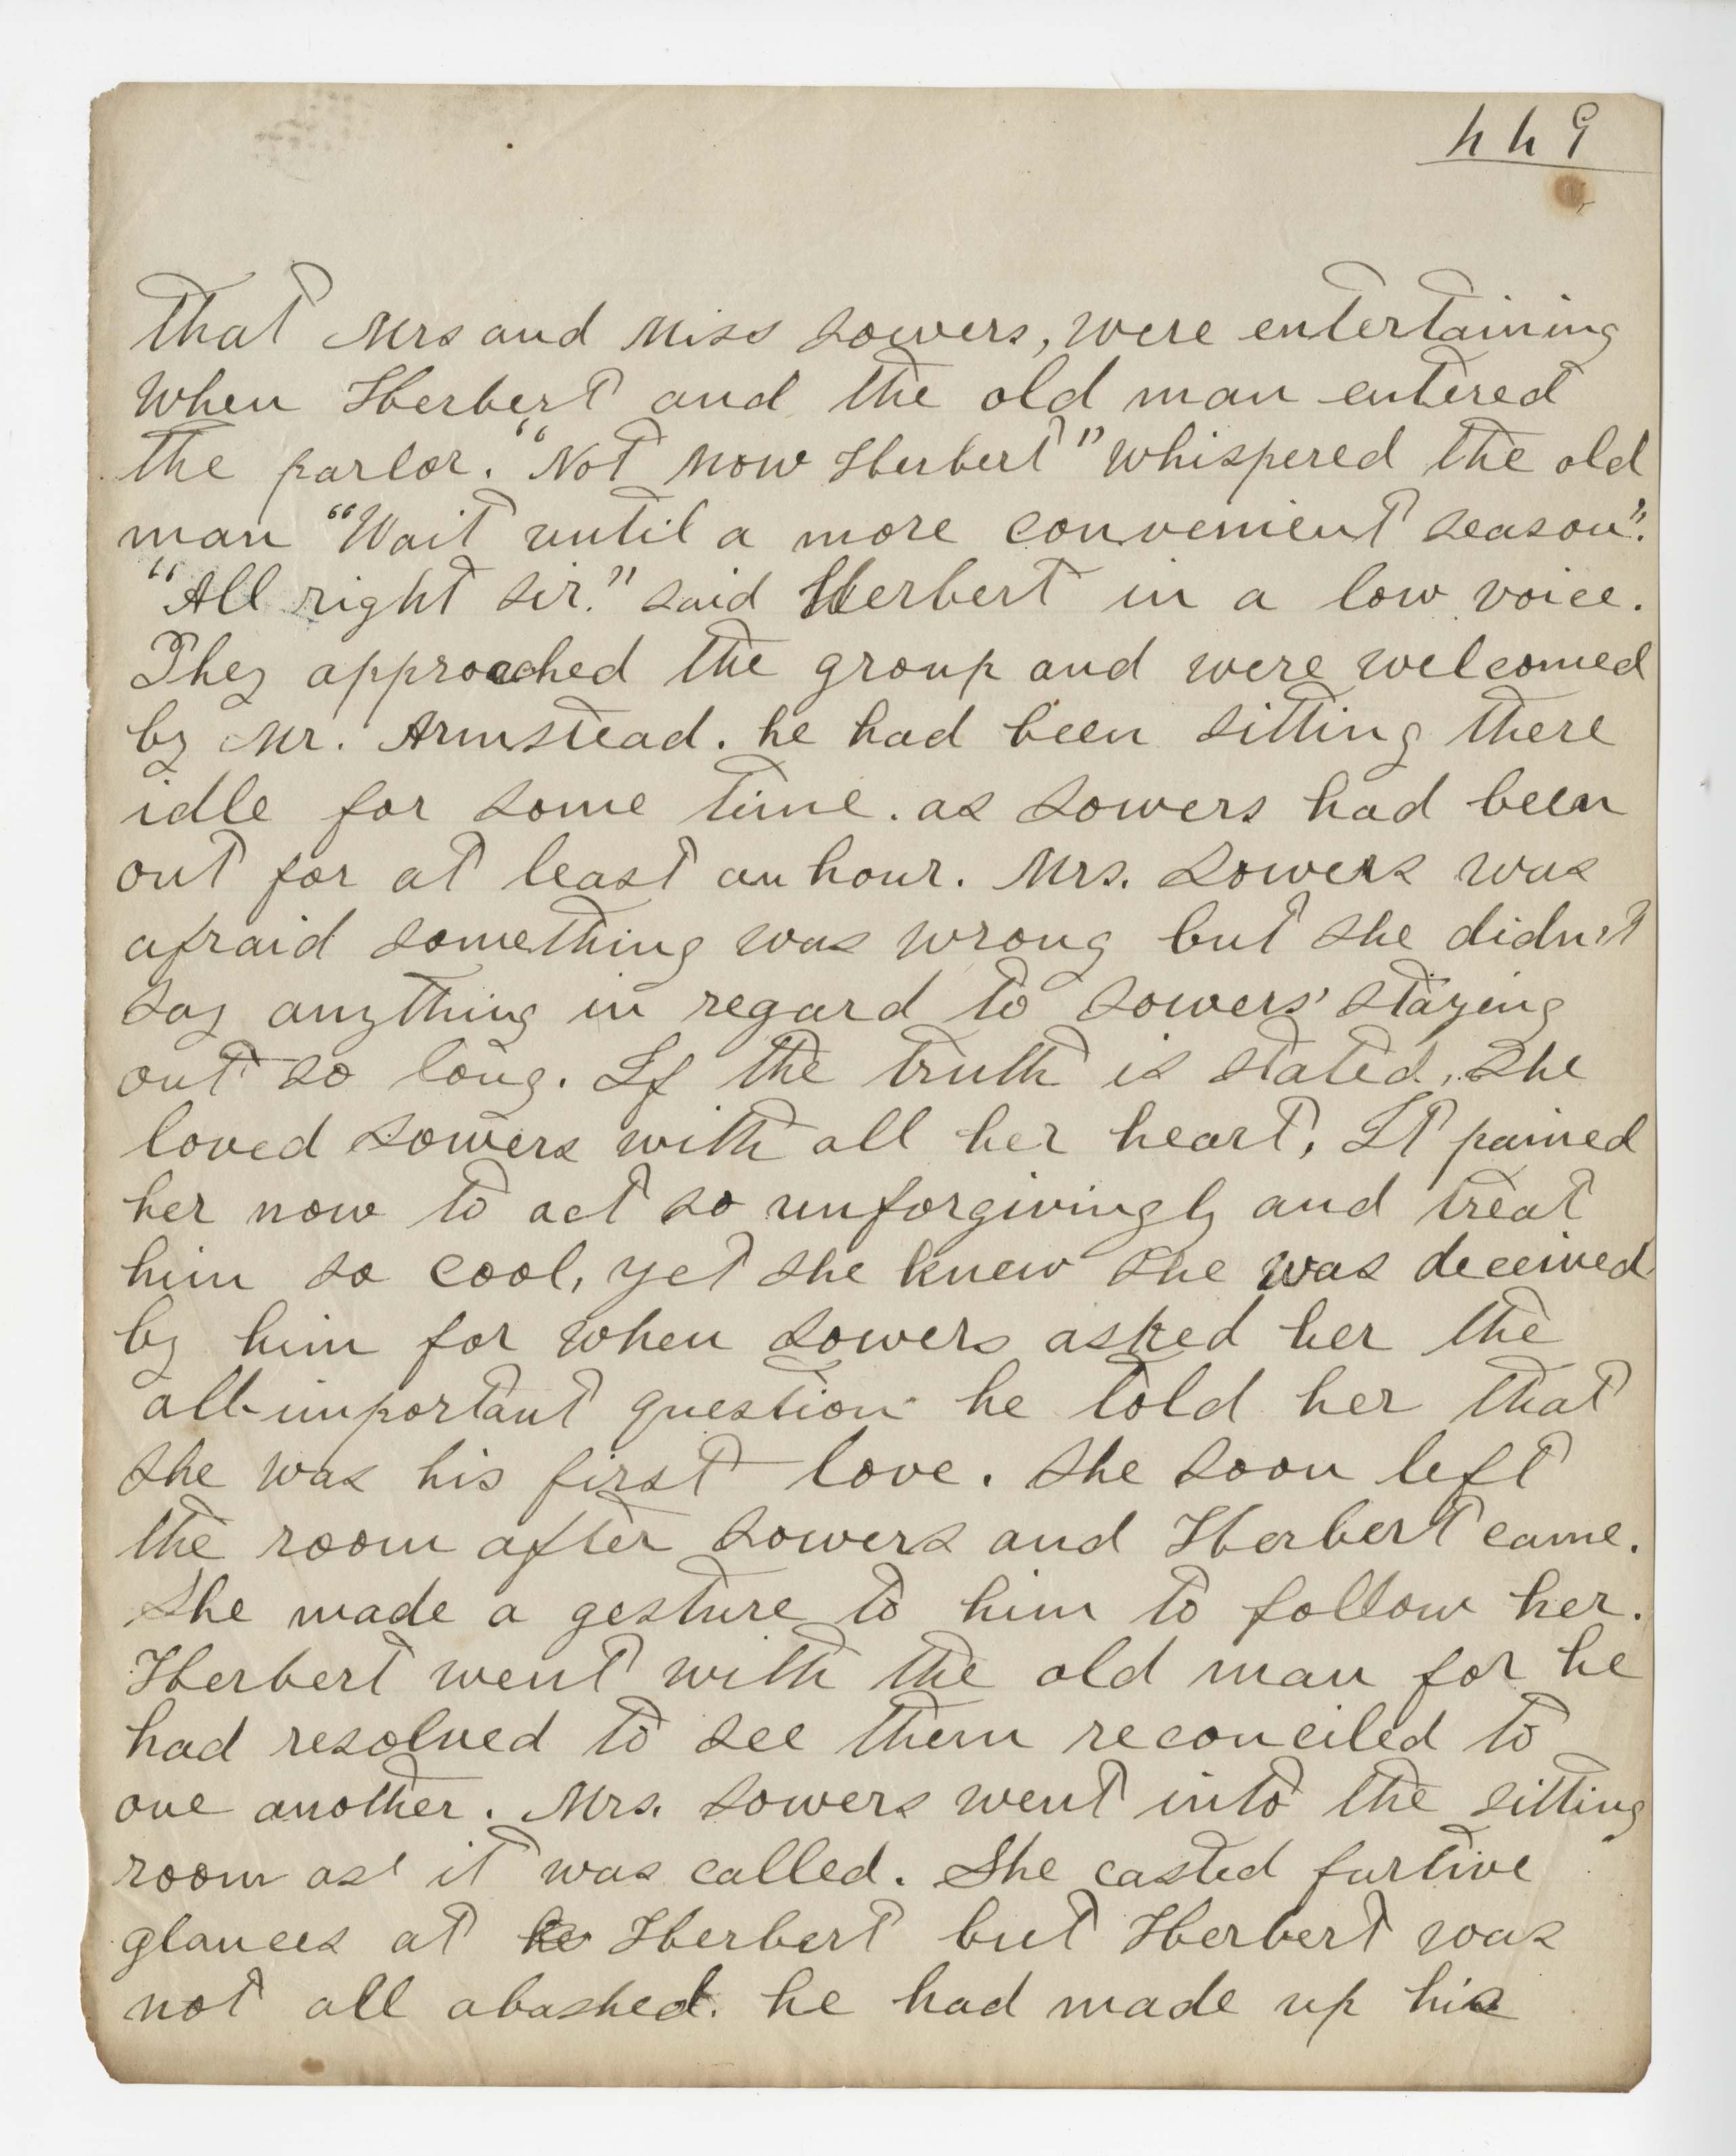 449
that Mrs and Miss Sowers, were entertaining
when Herbert and the old man entered
the parlor. "Not now Herbert" whispered the old
man "Wait until a more convenient season".
"All right sir." said Herbert in a low voice.
They approached the group and were welcomed
by Mr. Armstead. he had been sitting there
idle for some time. as Sowers had been
out for at least an hour. Mrs. Sowers was
afraid something was wrong but she didn't
say anything in regard to Sowers' staying
out so long. If the truth is stated, She
loved Sowers with all her heart, It pained
her now to act so unforgivingly and treat
him so cool, yet she knew she was deceived
by him for when Sowers asked her the
all-important question he told her that
she was his first love. She soon left
the room after Sowers and Herbert came.
She made a gesture to him to follow her.
Herbert went with the old man for he
had resolved to see them reconciled to
one another. Mrs. Sowers went into the sitting
room as it was called. She casted furtive
glances at he Herbert but Herbert was
not all abashed. he had made up his